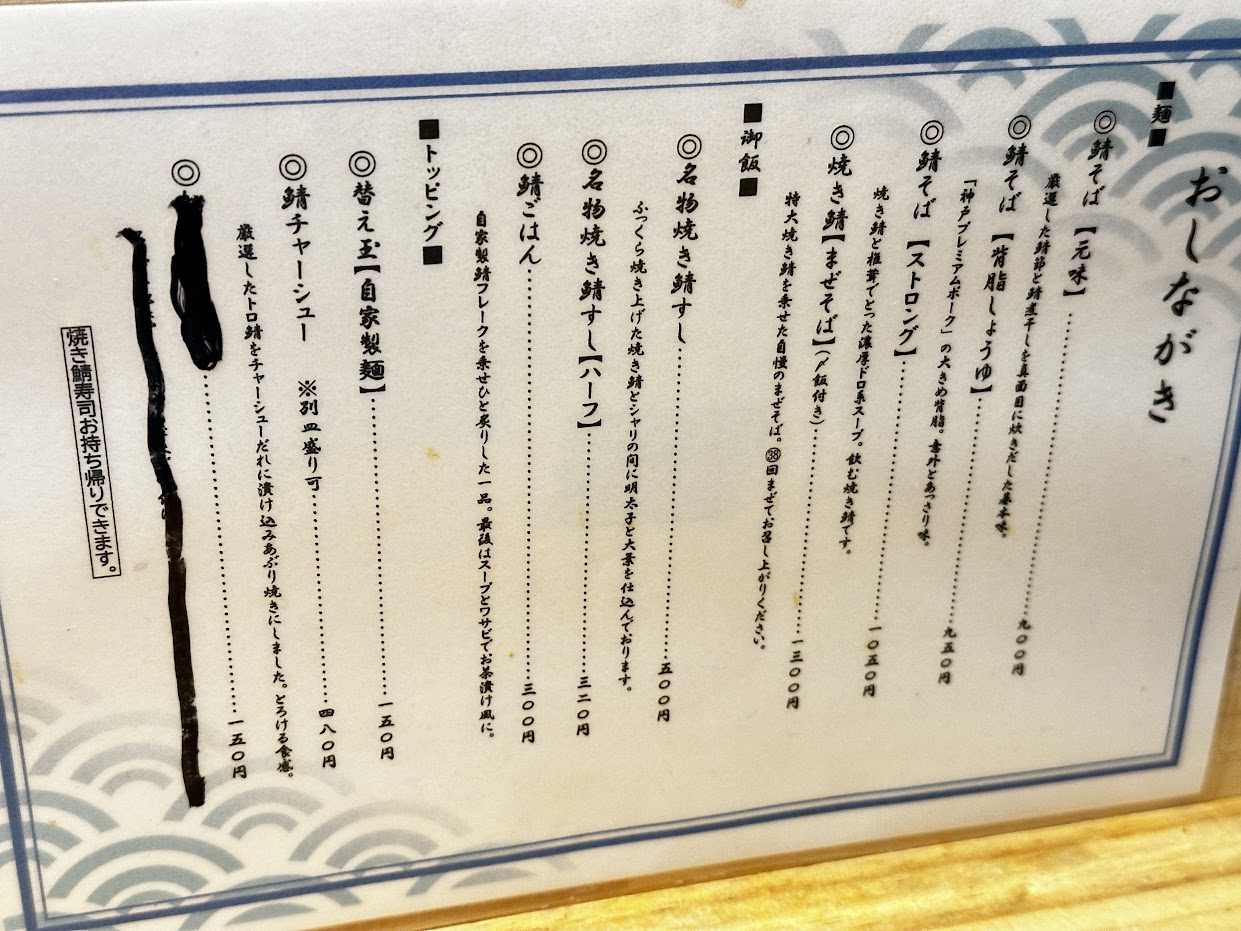 おしながき
■麺■
◎鯖そば【元味】……九〇〇円
厳選した鯖節と鯖煮干しを真面目に炊きだした基本味。
◎鯖そば【背脂しょうゆ】……九五〇円
「神戸プレミアムポーク」の大きめ背脂。意外とあっさり味。
◎鯖そば【ストロング】……一〇五〇円
焼き鯖と椎茸でとった濃厚ドロ系スープ。飲む焼き鯖です。
◎焼き鯖【まぜそば】(〆飯付き)……一三〇〇円
特大焼き鯖を乗せた自慢のまぜそば。㊳回まぜてお召し上がりください。
■御飯■
◎名物焼き鯖すし……五〇〇円
ふっくら焼き上げた焼き鯖とシャリの間に明太子と大葉を仕込んでおります。
◎名物焼き鯖すし【ハーフ】……三二〇円
◎鯖ごはん……三〇〇円
自家製鯖フレークを乗せひと炙りした一品。最後はスープとワサビでお茶漬け風に。
■トッピング■
◎替え玉【自家製麺】……一五〇円
◎鯖チャーシュー ※別皿盛り可……四八〇円
厳選したトロ鯖をチャーシューだれに漬け込みあぶり焼きにしました。とろける食感。
◎……一五〇円
焼き鯖寿司お持ち帰りできます。